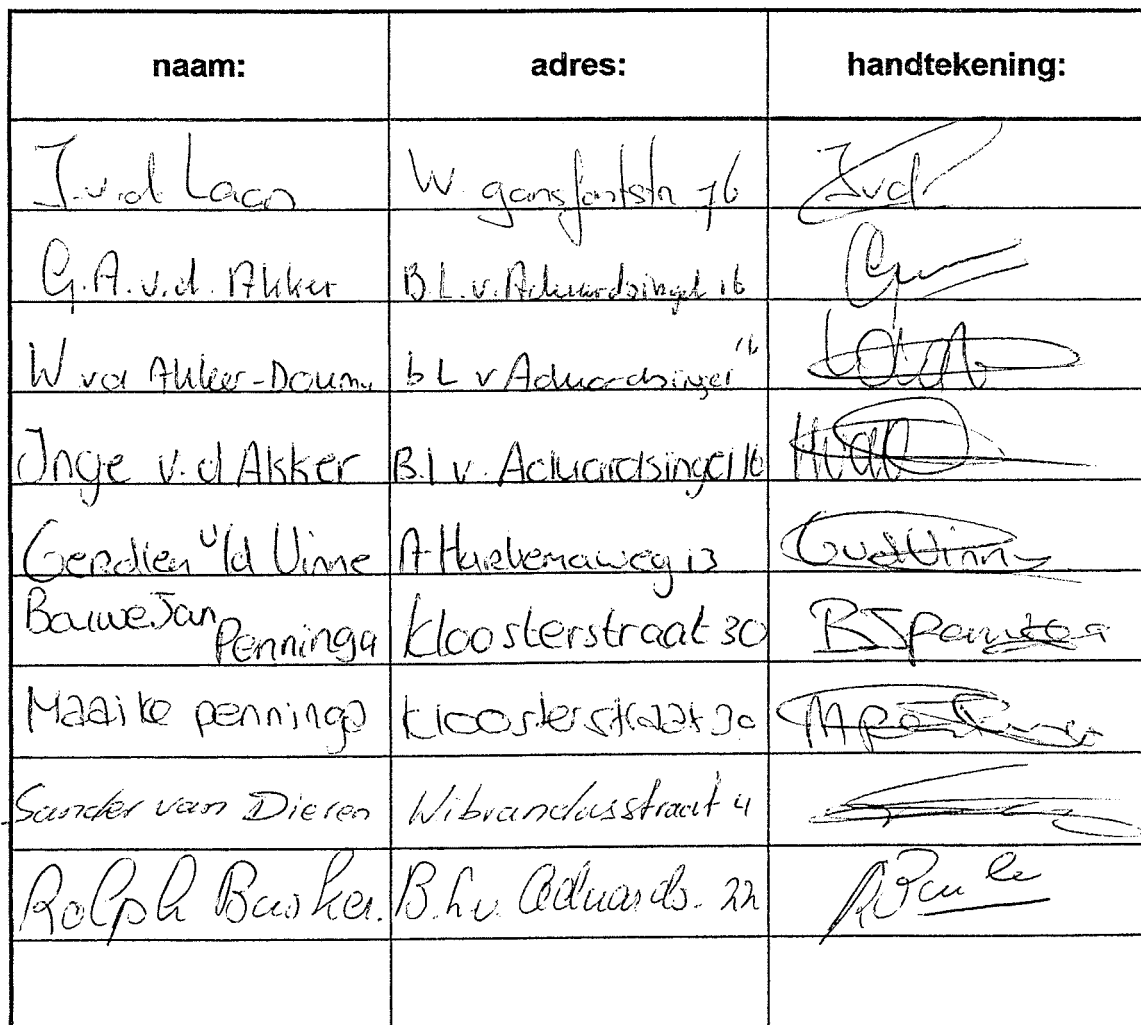 naam: adres: handtekening:
J.v.d. Laan W. gansfortstr 76
G.A.v.d. Akker B.L.v.Aduardsingel 16
W vd Akker-Douma bL v Aduardsingel 16
Inge v.d Akker B.l v. Aduardsingel 16
Gerdien v/d Vinne A Harkemaweg 13 GvdVinne
Bauwe Jan
Penninga Kloosterstraat 30 BJPenninga
Maaike penninga kloosterstraat 30
Sander van Dieren Wibrandusstraat 4
Rolph Busker. B.L.v. Aduards. 22